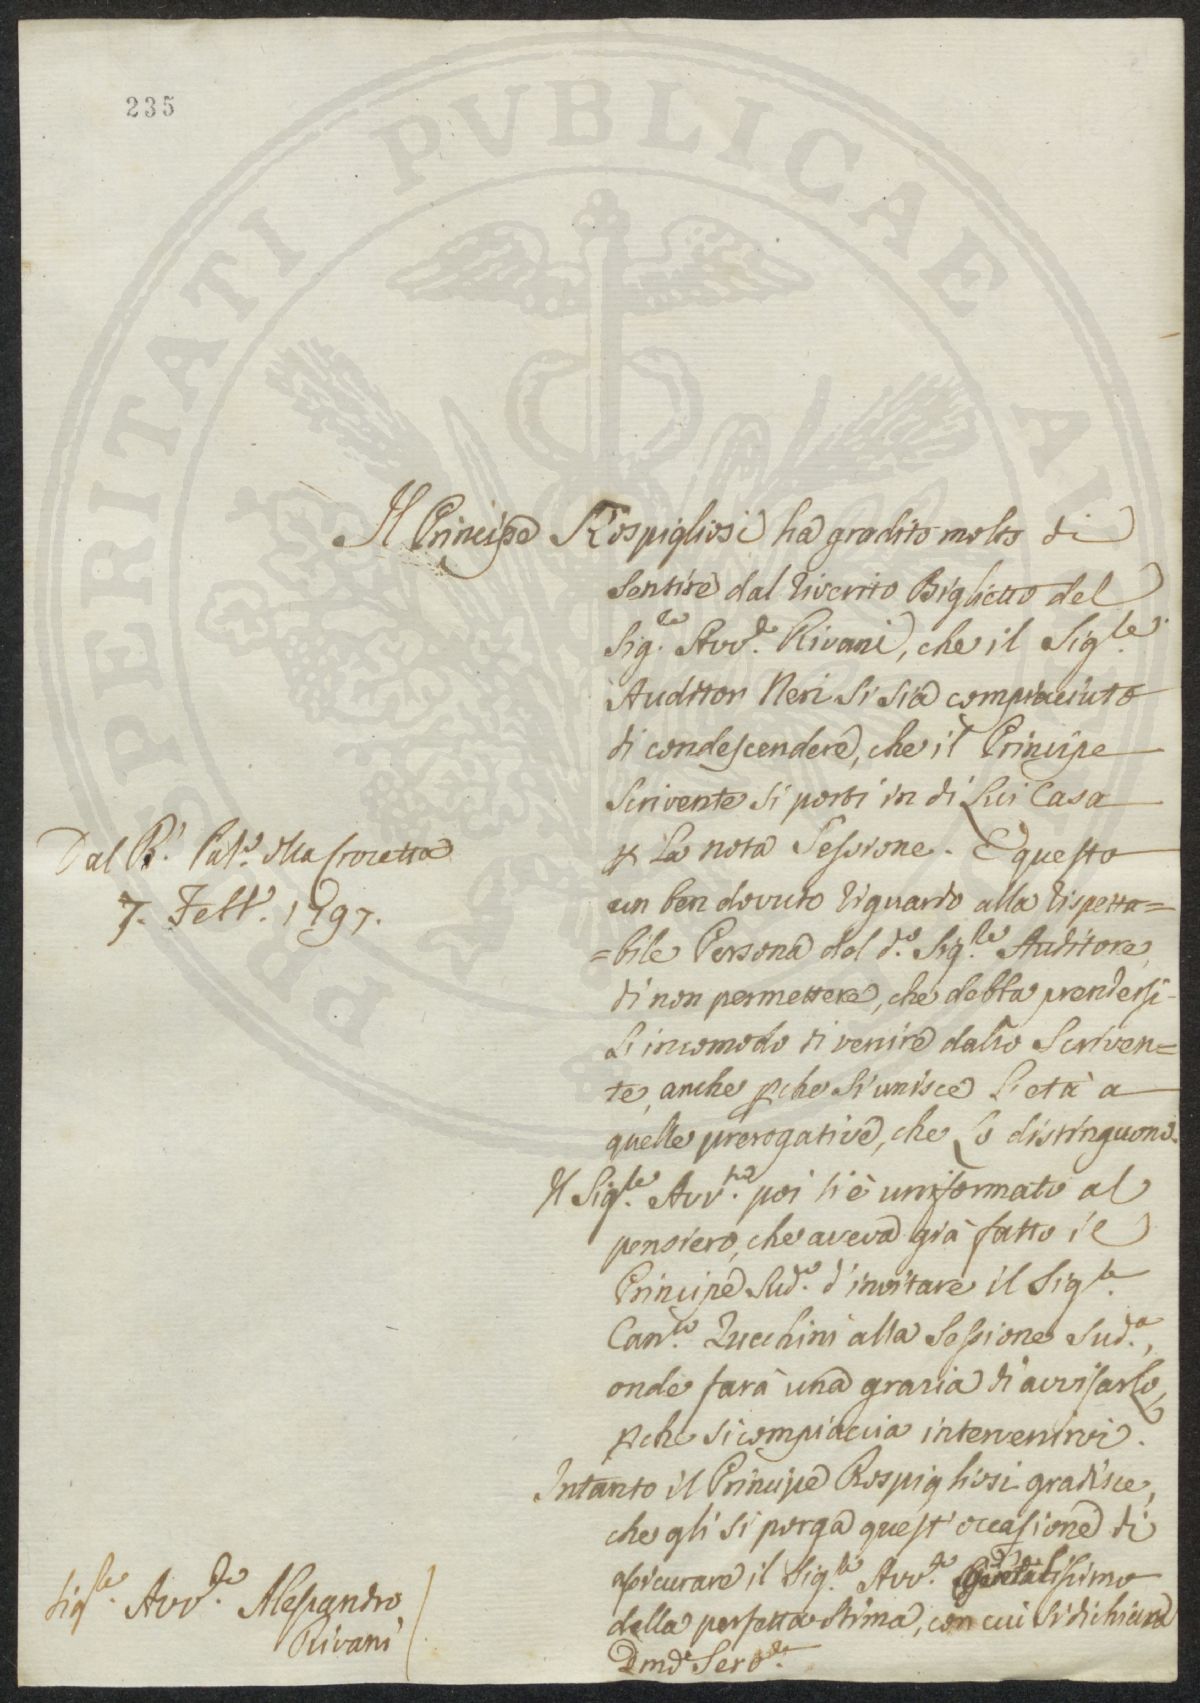 235
PROSPERITATI PVBLICAE AV
Il Principe Rospigliosi ha gradito molto di
sentire dal riverito Biglietto del
Sig.re Avv.to Rivani, che il Sig.re
Auditor Neri si sia compiaciuto
di condescendere, che il Principe
Scrivente si porti in di Lui Casa
p La nota Sessione. E questo
un ben dovuto riguardo alla rispetta=
=bile Persona del d.o Sig.re Auditore,
di non permettere, che debba prendersi
L'incomodo di venire dallo Scriven=
te, anche pche si unisce L'età a
quelle prerogative, che Lo distinguono.
Il Sig.re Avv.to poi si è uniformato al
pensiero, che aveva già fatto il
Principe Sud.o d'invitare il Sig.re
Can.co Zucchini alla Sessione Sud.a,
onde farà una grazia di avvisarlo,
pche si compiaccia intervenirvi.
Intanto il Principe Rospigliosi gradisce,
che gli si porga quest'occasione di
assicurare il Sig.re Avv.to
della perfetta stima, con cui si dichiara
Dal R. Pal.o della Crocetta
7. Febb. 1797.
Sig.re Avv.to Alessandro
Rivani